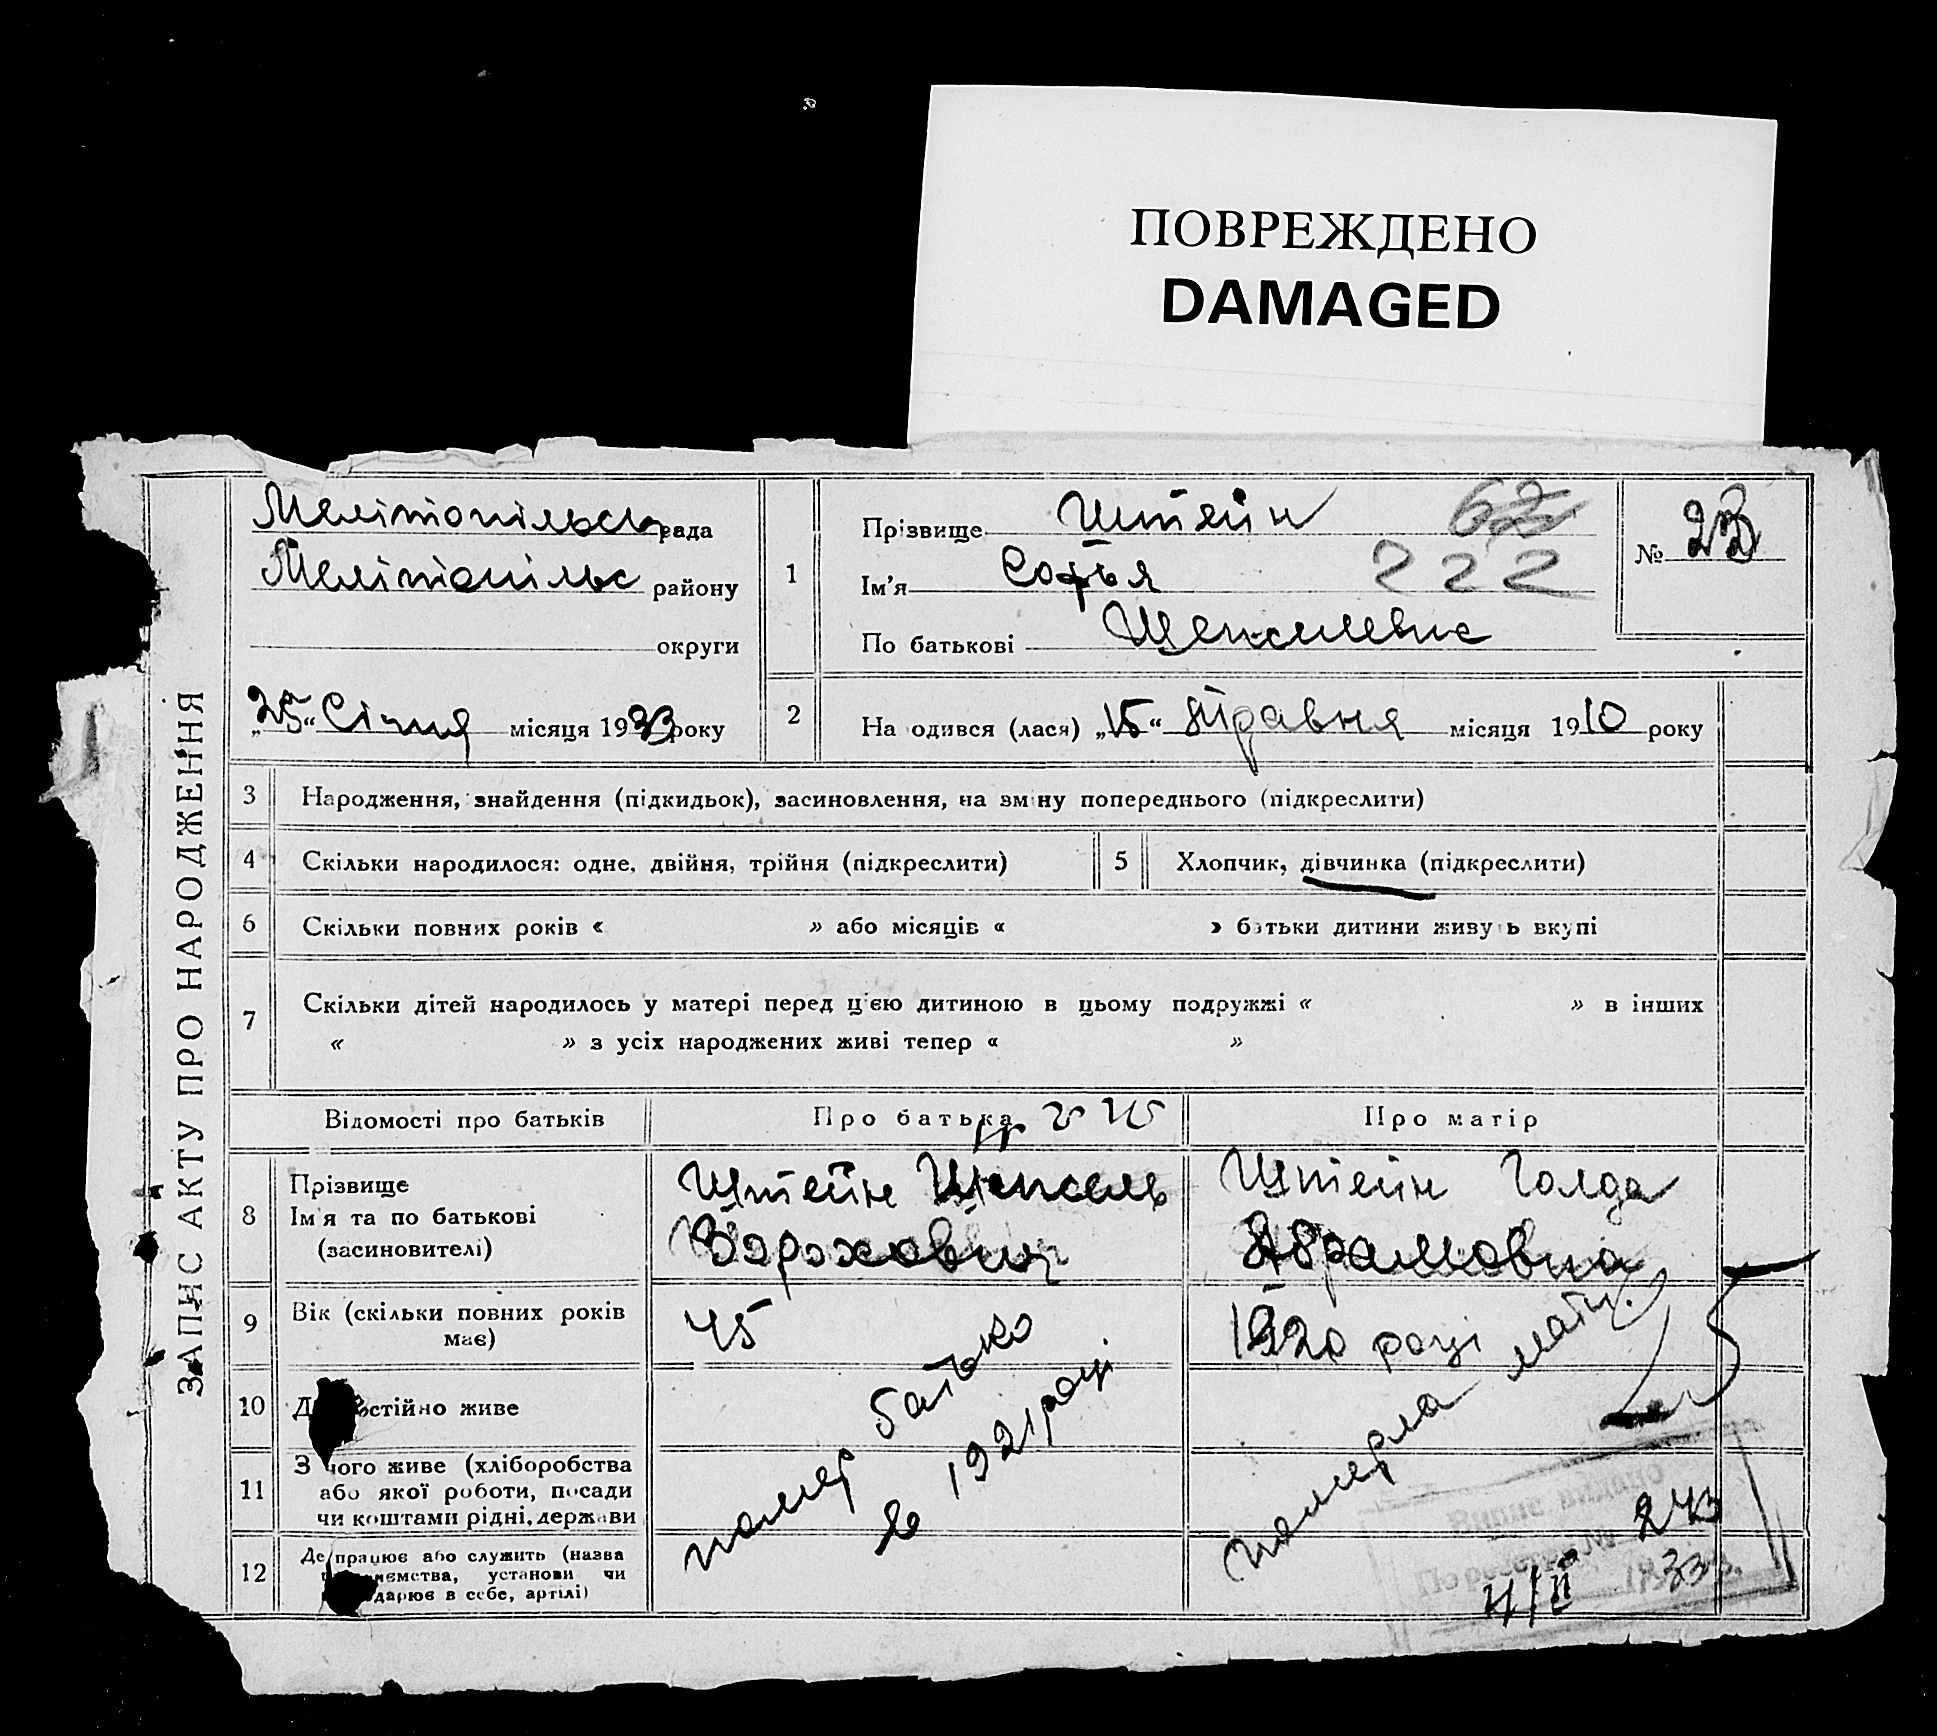 ПОВРЕЖДЕНО
DAMAGED
ЗАПИС АКТУ ПРО НАРОДЖЕННЯ
Мелітопільськ рада
Мелітопільс району
округи
„25“ Січня місяця 1933 року
1
Прізвище Штейн 67
Ім'я Софья 222
По батькові Шепселевна
№ 23
2
На одився (лася) „15“ Травня місяця 1910 року
3 Народження, знайдення (підкидьок), засиновлення, на зміну попереднього (підкреслити)
4 Скільки народилося: одне, двійня, трійня (підкреслити)
5 Хлопчик, дівчинка (підкреслити)
6 Скільки повних років « » або місяців « » батьки дитини живуть вкупі
7 Скільки дітей народилось у матері перед цією дитиною в цьому подружжі « » в інших
« » з усіх народжених живі тепер « »
Відомості про батьків
Про батька
Про матір
8 Прізвище
Ім'я та по батькові
(засиновителі)
Штейн Шепсель
Борохович
Штейн Голда
Абрамовна
9 Вік (скільки повних років
має)
45
1920 році
10 Д стійно живе
11 З чого живе (хліборобства
або якої роботи, посади
чи коштами рідні, держави
12 Де працює або служить (назва
ємства, установи чи
дарює в себе, артілі)
помер батько
в 1921 році
померла мати
Випис видано
По реєстру № 243
4/II 1933 р.